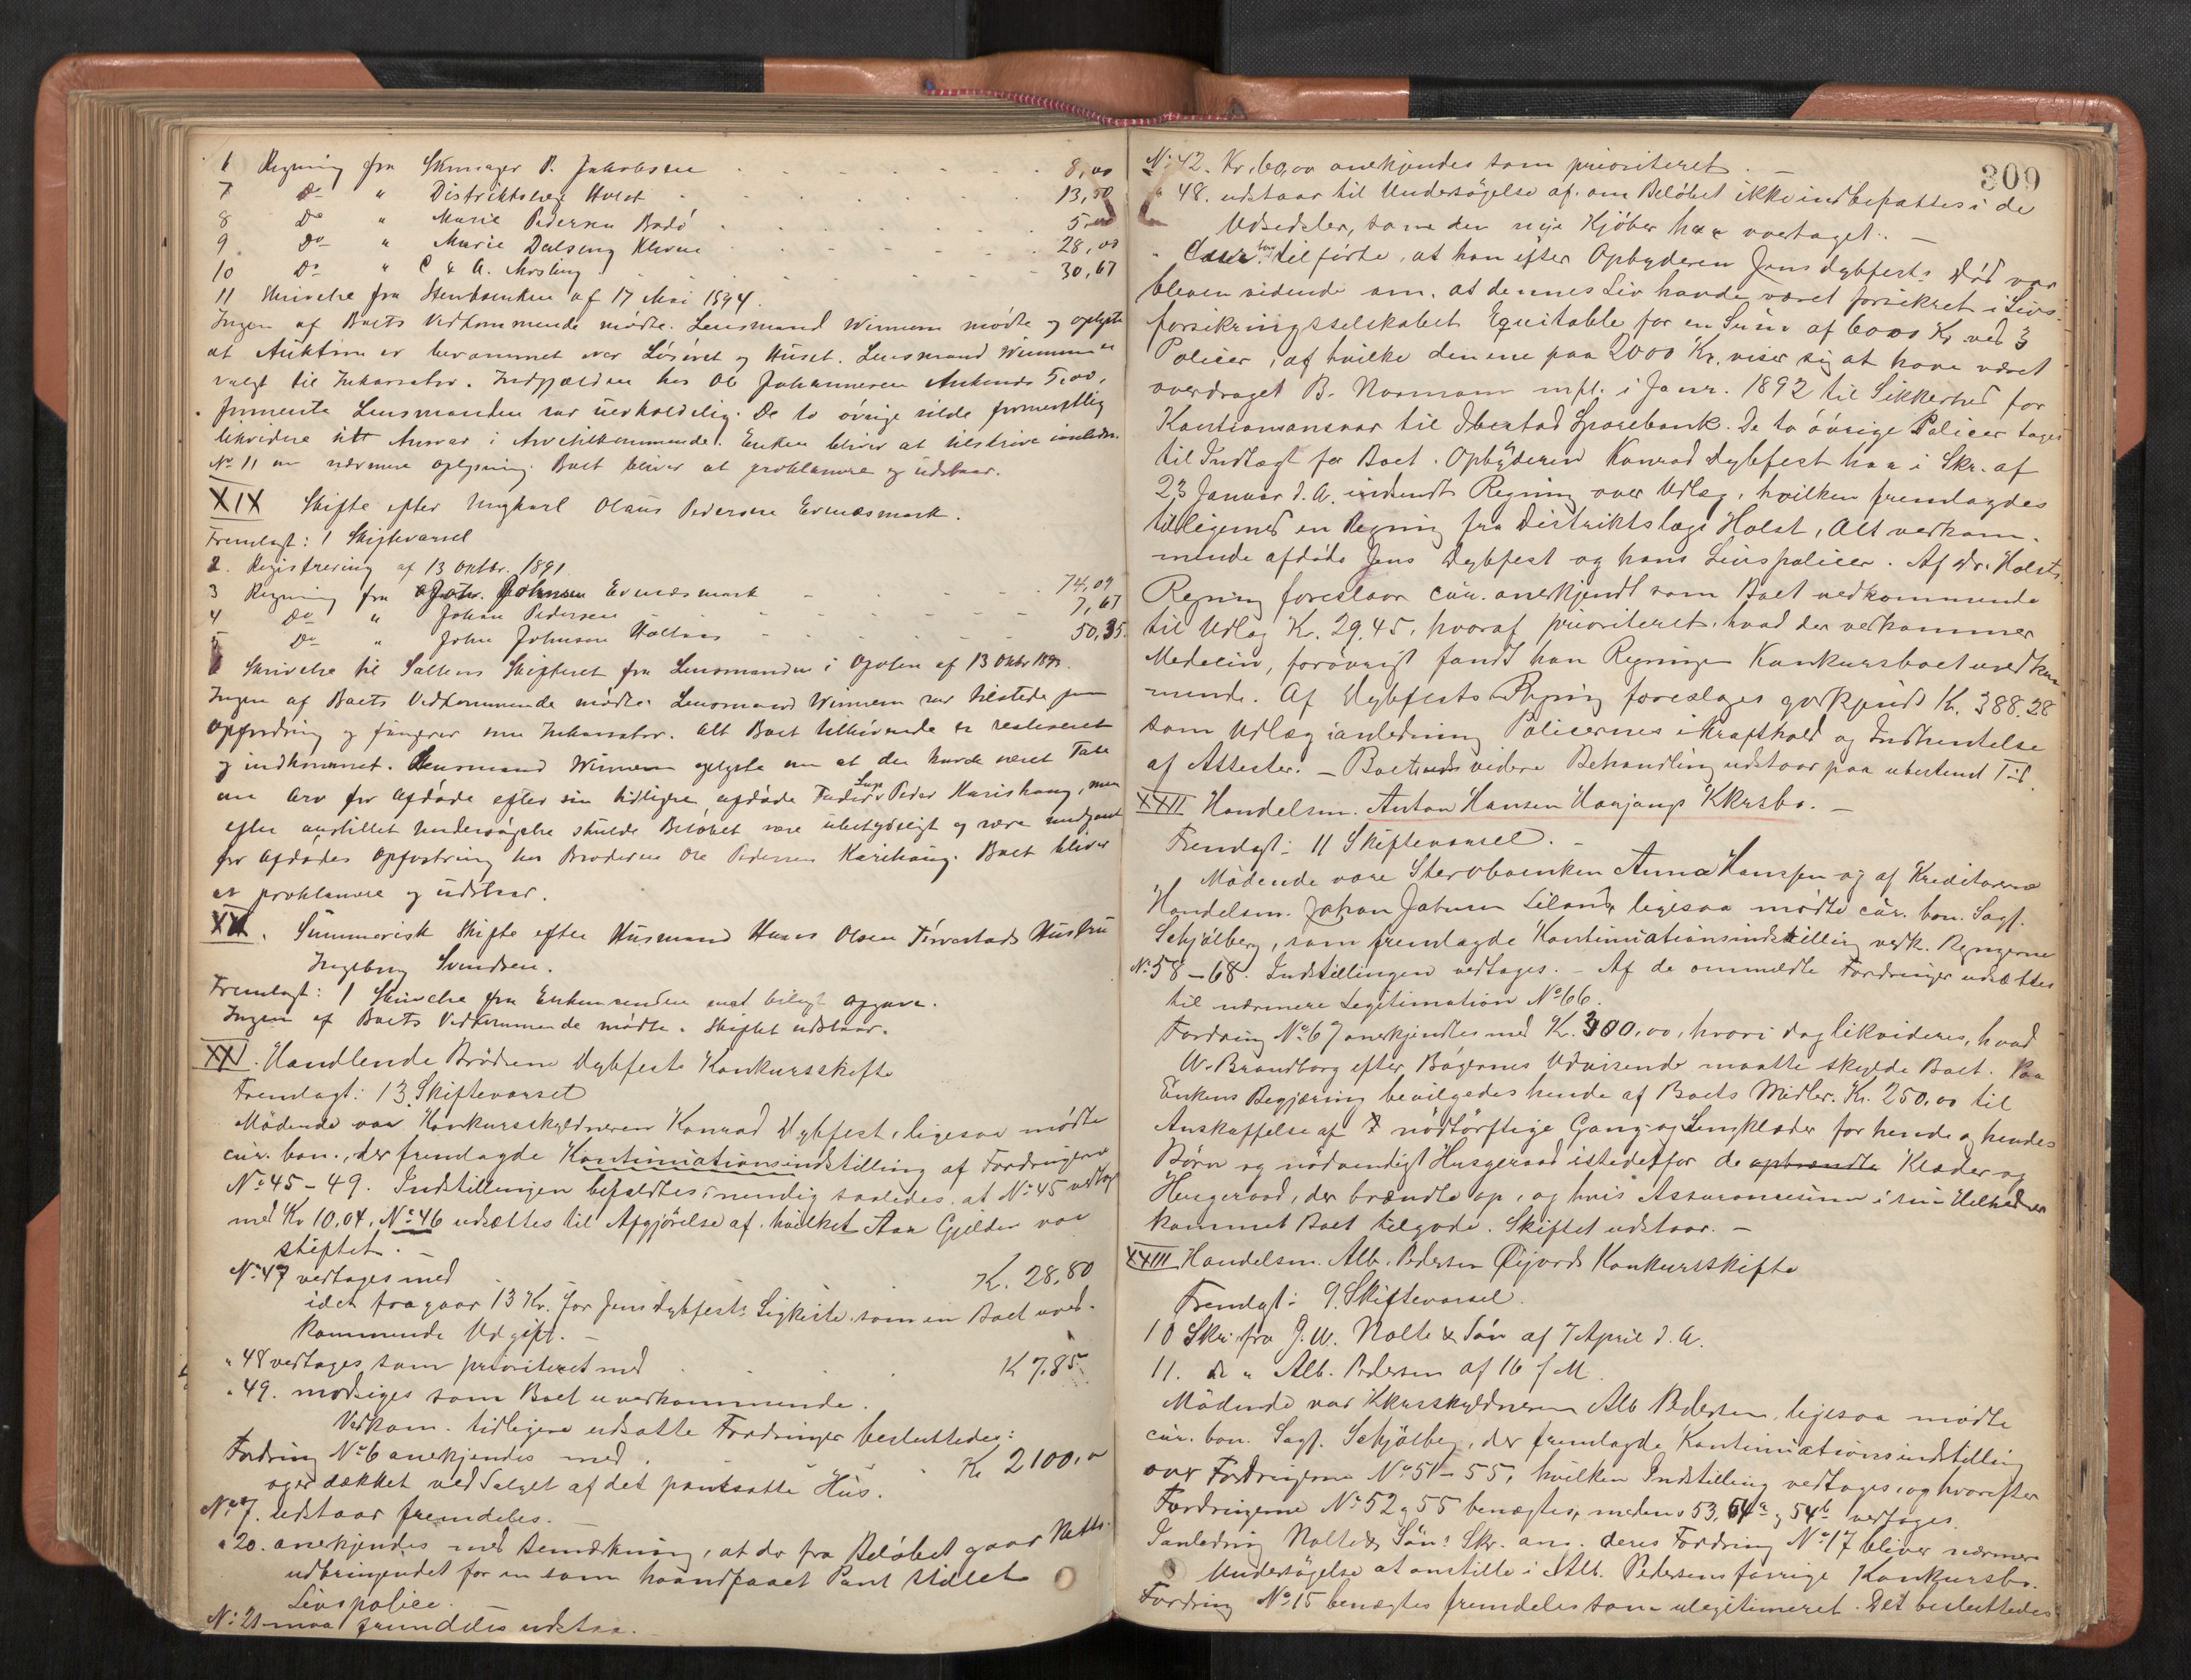 6 Regning fra Skomager P. Jakobsen 8,00
7 Do " Distriktslæge Holst 13,50
8 Do " Marie Pedersen Bodö 5,00
9 Do " Marie Dalseng 28,00
10 Do " C & A. 30,67
11 Skrivelse fra Stervboenken af 17 Mai 1894.
Ingen af Boets Vedkommende mødte. Lensmand Winnem mødte og oplyste
at Auktion er berammet over Løsøret og Huset. Lensmand Winnem er
valgt til Inkassator. Indgjælden hos Ole Johannesen Ankenes 5,00,
formente Lensmanden var uerholdelig. De to øvrige vilde formentlig
likvidere sit Ansvar i Arvetilkommende. Enken bliver at tilskrive
No 11 om nærmere Oplysning. Boet bliver at proklamere og udstaar.
XIX Skifte efter Ungkarl Olaus Pedersen Evenæsmark.
Fremlagt: 1 Skiftevarsel
2. Registrering af 13 Oktbr. 1891.
3 Regning fra Johnsen Evenæsmark 74,09
4 Do " Johan Pedersen 7,67
5 Do " John Johnsen 50,35.
6 Skrivelse til Saltens Skifteret fra Lensmanden i Ofoten af 13 Oktbr 1893.
Ingen af Boets Vedkommende mødte. Lensmand Winnem var tilstede paa
Opfordring og fungerer som Inkassator. Alt Boet tilhørende er realiseret
og indkommet. Lensmand Winnem oplyste om at der havde været Tale
om Arv for Afdøde efter sin tidligere afdøde Fader Peder Larsen Karishaug, men
efter anstillet Undersøgelse skulde Beløbet være ubetydeligt og være medgaaet
for Afdødes Opfostring hos Broderen Ole Pedersen Karishaug. Boet bliver
at proklamere og udstaar.
XX. Summarisk Skifte efter Husmand Hans Olsen Hustru
Ingeborg Svendsen.
Fremlagt: 1 Skrivelse fra Enkemanden med bilagt Opgave.
Ingen af Boets Vedkommende mødte. Skiftet udstaar.
XXI. Handlende Brødrene Dybfests Konkursskifte
Fremlagt: 13 Skiftevarsel
Mødende var Konkursskyldneren Konrad Dybfest, ligesaa mødte
cur. bon., der fremlagde Kontinuationsindstilling af Fordringerne
No 45-49. Indstillingen befuldtes, nemlig saaledes at No 45 vedtog
med Kr 10,04, No 46 udsættes til Afgjørelse af hvilket Aar Gjelden var
stiftet.
No 47 vedtages med K. 28,80
idet fragaar 13 Kr. for Jens Dybfests Ligkiste som en Boet uved-
kommende Udgift.
" 48 vedtages som prioriteret med K 7,85
" 49. modsiges som Boet uvedkommende.
Vedkom. tidligere udsatte Fordringer besluttedes:
Fordring No 6 anerkjendes med Kr 2100,00
og er dækket ved Salget af det pantsatte Hus.
No 7. udstaar fremdeles.
" 20. anerkjendes med Bemærkning, at der fra Beløbet gaar Netto
udbringendet for en som haandfaaet Pant stillet
Livspolice.
No 21 maa fremdeles udstaa.
309
No 42. Kr. 60,00 anerkjendes som prioriteret.
" 48. udstaar til Undersøgelse af om Beløbet ikke indbefattes i de
Udsedeler, som den nye Kjøber har overtaget.
" Curator tilførte, at han efter Opbyderen Jens Dybfests Død var
bleven vidende om, at dennes Liv havde været forsikret i Livs-
forsikringsselskabet Equitable for en Sum af 6000 Kr ved 3
Policer, af hvilke den ene paa 2000 Kr. viser sig at have været
overdraget B. Normann mfl. i Janr. 1892 til Sikkerhed for
Kautionsansvar til Ibestad Sparebank. De to øvrige Policer tages
til Indtægt for Boet. Opbyderen Konrad Dybfest har i Skr. af
23 Januar d. A. indsendt Regning over Udlæg, hvilken fremlagdes
tilligemed en Regning fra Distriktslæge Holst, Alt vedkom-
mende afdøde Jens Dybfest og hans Livspolicer. Af Dr. Holsts
Regning foreslaar cur. anerkjendt som Boet vedkommende
til Udlag Kr. 29.45, hvoraf prioriteret, hvad der vedkommer
Medecin, forøvrigt fandt han Regningen Konkursboet uvedkom-
mende. Af Dybfests Regning foreslages godkjendt Kr. 388.28
som Udlæg i anledning Policernes ikrafthold og Indhentelse
af Attester. - Boets videre Behandling udstaar paa ubestemt Tid.
XXII Handelsm. Anton Hansen Haajangs Kkursbo.
Fremlagt: 11 Skiftevarsel.
Mødende vare Stervboenken Anna Hanssen og af Kreditorerne
Handelsm. Johan Jobusen Liland, ligesaa mødte cur. bon. Sagf.
Schjølberg, som fremlagde Kontinuationsindstilling vedk. Regngerne
No 58-68. Indstillingen vedtages. - Af de ommeldte Fordringer udsættes
til nærmere Legitimation No 66.
Fordring No 67 anerkjendtes med Kr. 300,00, hvori dog likvideres, hvad
W. Brandborg efter Bøgernes Udvisende maatte skylde Boet. Paa
Enkens Begjæring bevilgedes hende af Boets Midler Kr. 250,00 til
Anskaffelse af nødtørftige Gang- og Sengklæder for hende og hendes
Børn og nødvendigt Husgeraad istedetfor de opbrændte Klæder og
Husgeraad, der brændte op, og hvis Assurancesum i sin Helhed er
kommet Boet tilgode. Skiftet udstaar.
XXIII Handelsm. Alb. Pedersen Øijords Konkursskifte
Fremlagt: 9. Skiftevarsel.
10 Skr. fra J. W. Nolte & Søn af 7 April d. A.
11. do " Alb. Pedersen af 16 f M.
Mødende var Kkursskyldneren Alb Pedersen, ligesaa mødte
cur. bon. Sagf. Schjølberg, der fremlagde Kontinuationsindstilling
over Fordringerne No 51-55, hvilken Indstilling vedtages, og hvorefter
Fordringerne No 52 og 55 benægtes, medens 53, 54a og 54b vedtages.
I anledning Nolte & Søns Skr. ang. deres Fordring No 17 bliver nærmere
Undersøgelse at anstille i Alb. Pedersens forrige Konkursbo.
Fordring No 15 benægtes fremdeles som ulegitimeret. Det besluttedes